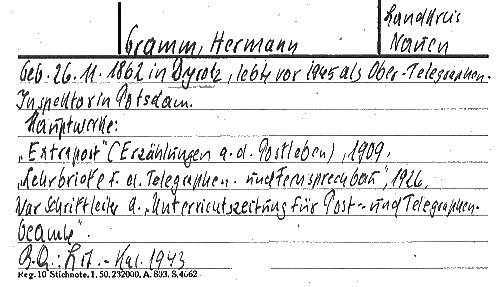 Landkreis
Gramm, Hermann Nauen
Geb. 26.11.1862 in Dyrotz, lebte vor 1945 als Ober-Telegraphen-
Inspektor in Potsdam.
Hauptwerke:
„Extrapost" (Erzählungen a. d. Postleben), 1909.
„Lehrbriefe f. d. Telegraphen- und Fernsprechbau", 1926.
War Schriftleiter d. „Unterrichtszeitung für Post- und Telegraphen-
beamte".
B.Q.: Lit.-Kal. 1943
Reg. 10 Stichnote. 1. 50. 232000. A. 893. S. 4662